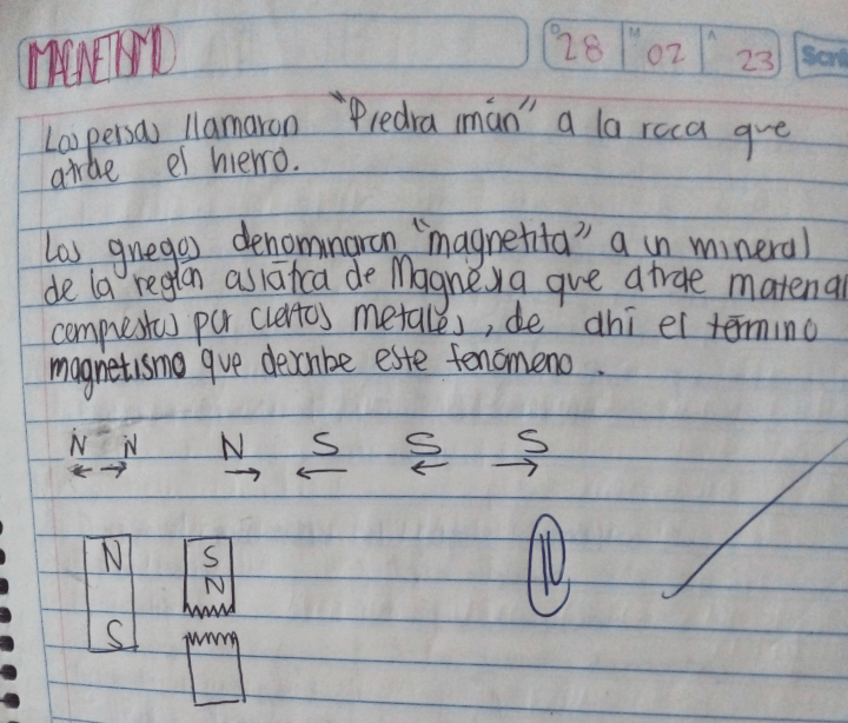 MAGNETISMO
D 28 M 02 A 23
Los persas llamaron "Piedra imán" a la roca que
atrae el hierro.
Los griegos denominaron "magnetita" a un mineral
de la región asiática de Magnesia que atrae material
compuestos por ciertos metales, de ahí el término
magnetismo que describe este fenómeno.
N N N S S S
N S
N
S